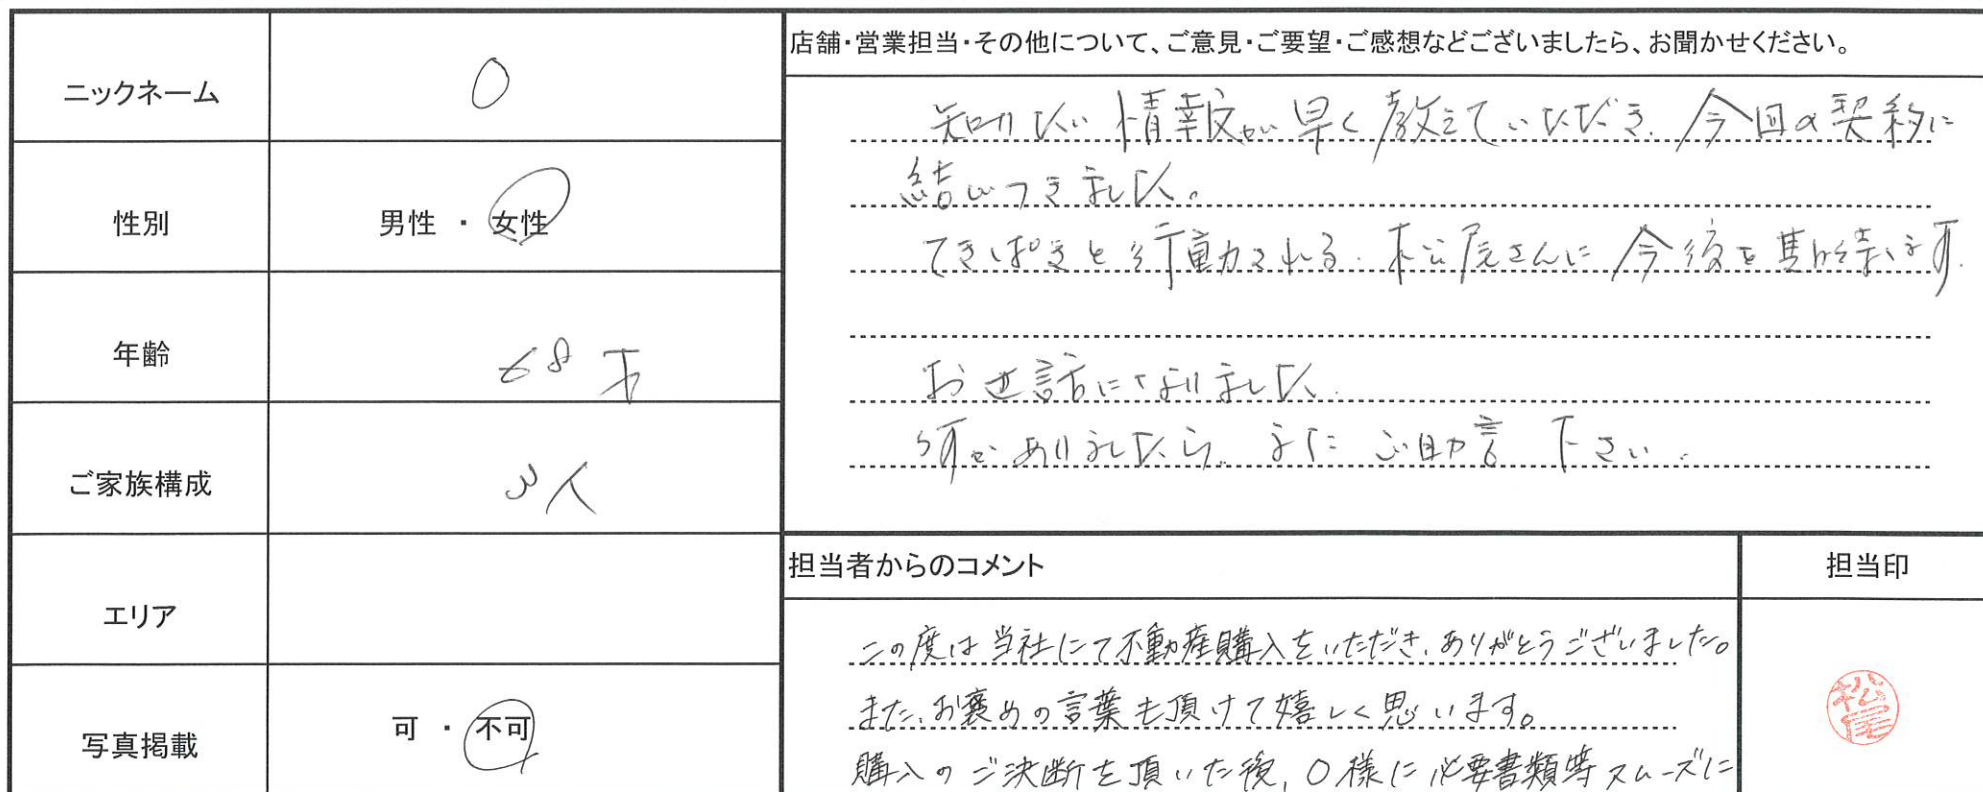 ニックネーム
O
性別
男性 ・ 女性
年齢
68才
ご家族構成
3人
エリア
写真掲載
可 ・ 不可
店舗・営業担当・その他について、ご意見・ご要望・ご感想などございましたら、お聞かせください。
知りたい情報が早く教えていただき、今回の契約に
結びつきました。
てきぱきと行動される、松尾さんに今後を期待します。
お世話になりました。
何かありましたら、またご助言下さい。
担当者からのコメント
この度は当社にて不動産購入をいただき、ありがとうございました。
また、お褒めの言葉も頂けて嬉しく思います。
購入のご決断を頂いた後、O様に必要書類等スムーズに
担当印
松尾